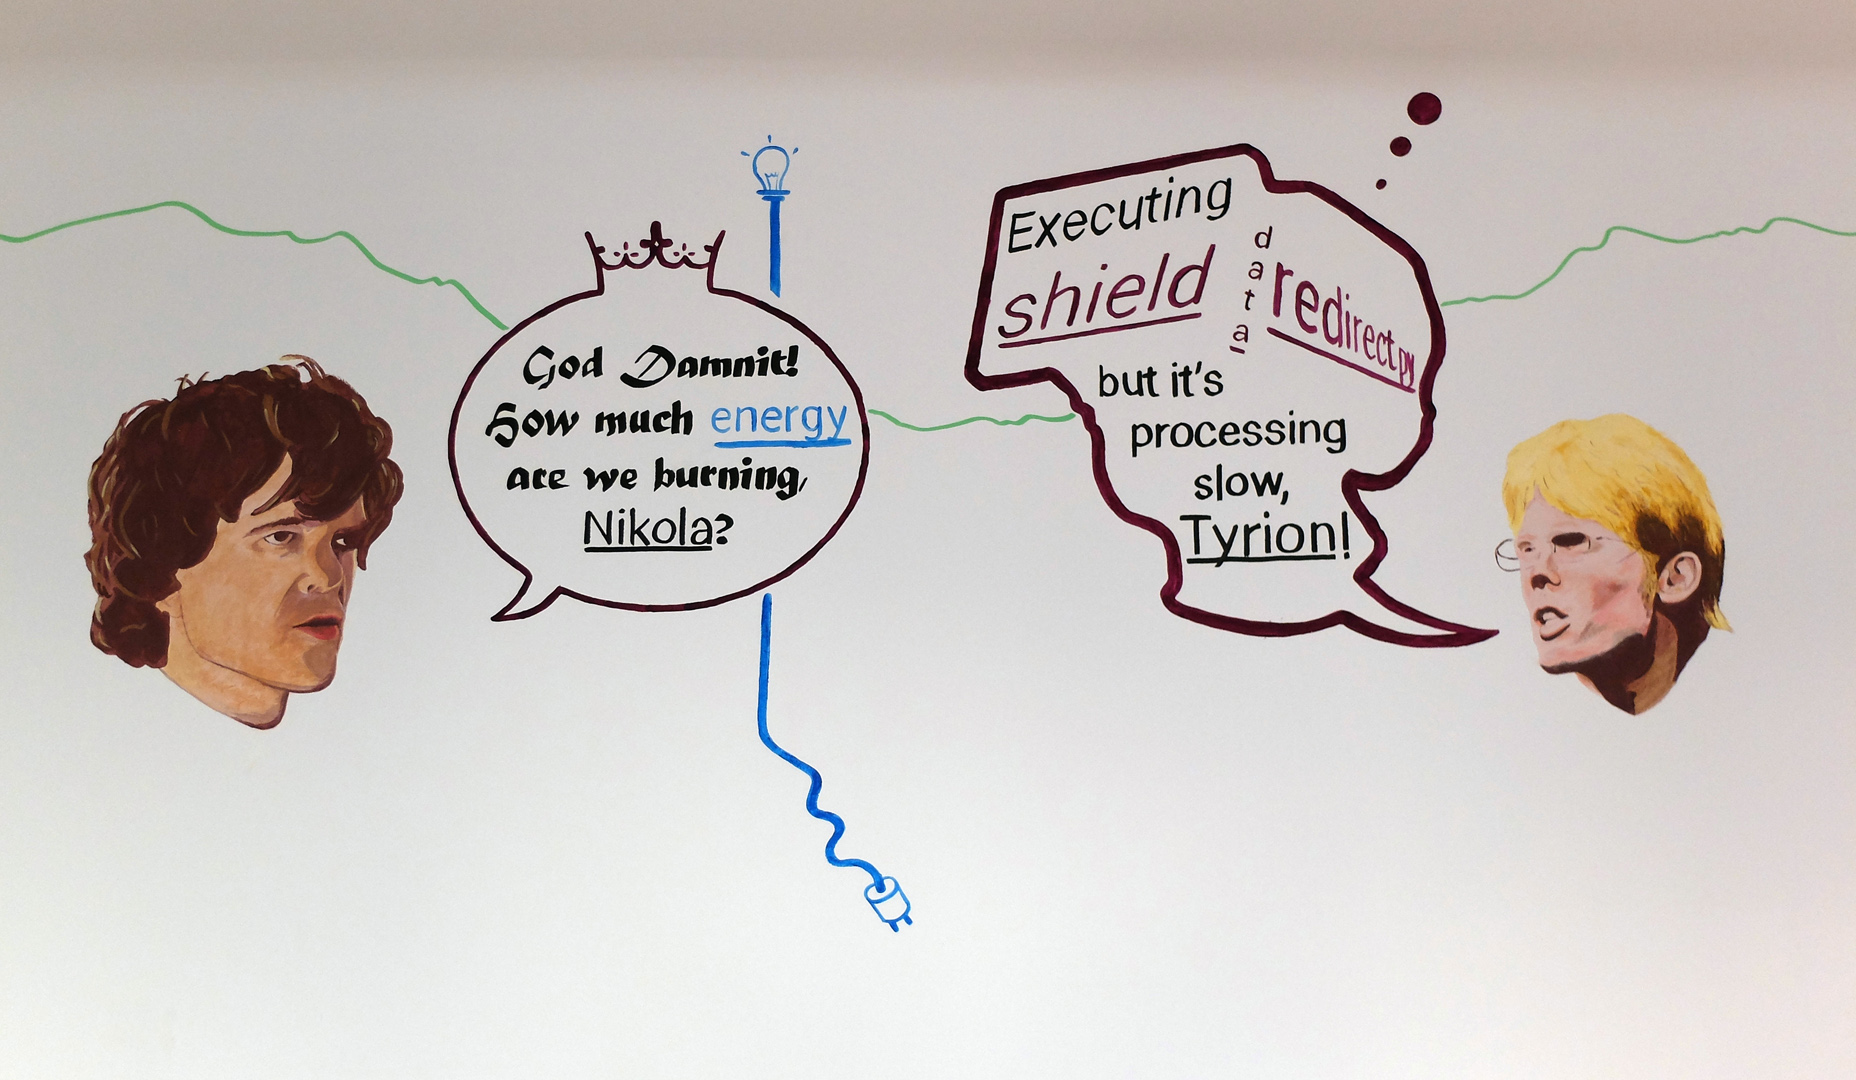 God Damnit!
How much energy
are we burning,
Nikola?
Executing
shield data redirect.py
but it's
processing
slow,
Tyrion!